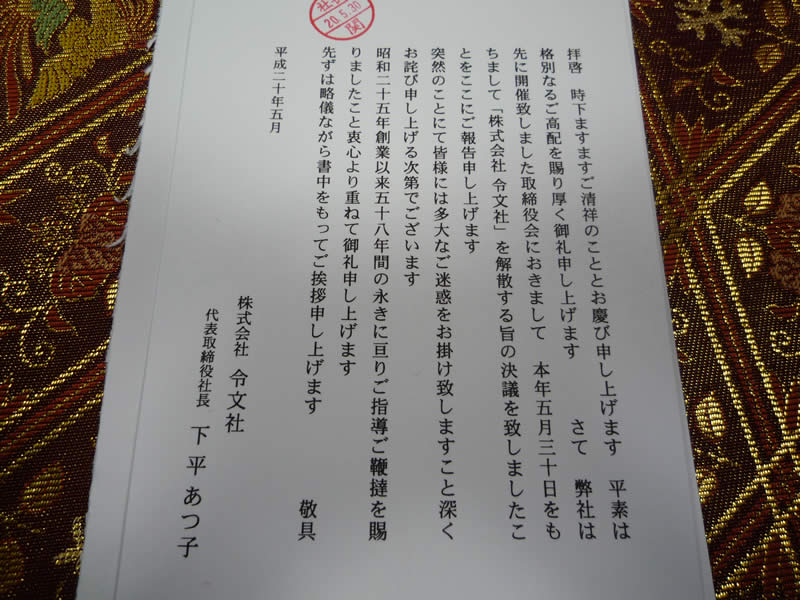 拝啓　時下ますますご清祥のこととお慶び申し上げます　平素は
格別なるご高配を賜り厚く御礼申し上げます　さて　弊社は
先に開催致しました取締役会におきまして　本年五月三十日をも
ちまして「株式会社 令文社」を解散する旨の決議を致しましたこ
とをここにご報告申し上げます
突然のことにて皆様には多大なご迷惑をお掛け致しますこと深く
お詫び申し上げる次第でございます
昭和二十五年創業以来五十八年間の永きに亘りご指導ご鞭撻を賜
りましたこと衷心より重ねて御礼申し上げます
先ずは略儀ながら書中をもってご挨拶申し上げます
敬具
平成二十年五月
株式会社 令文社
代表取締役社長　下平あつ子
20.5.30
関